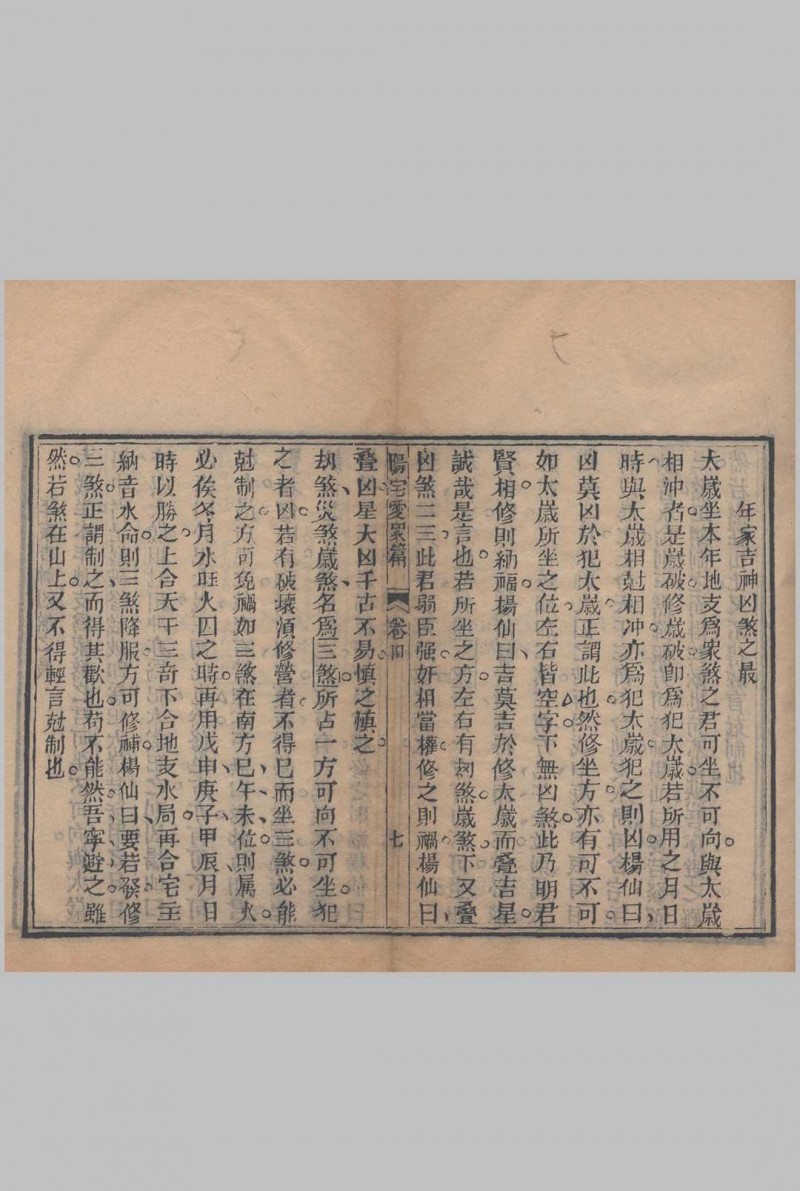 年家吉神凶煞之最
太歲坐本年地支爲衆煞之君可坐不可向與太歲
相沖者是歲破修歲破卽爲犯太歲若所用之月日
時與太歲相尅相冲亦爲犯太歲犯之則凶楊仙曰
凶莫凶於犯太歲正謂此也然修坐方亦有可不可
如太歲所坐之位左右皆空字下無凶煞此乃明君
賢相修則納福楊仙曰吉莫吉於修太歲而叠吉星
誠哉是言也若所坐之方左右有刼煞歲煞下又叠
凶煞二三此君弱臣强奸相當權修之則禍楊仙曰
陽宅愛衆篇 卷四 七
叠凶星大凶千古不易愼之愼之
刼煞災煞歲煞名爲三煞所占一方可向不可坐犯
之者凶若有破壞湏修營者不得已而坐三煞必能
尅制之方可免禍如三煞在南方巳午未位則属火
必俟冬月水旺火囚之時再用戊申庚子甲辰月日
時以勝之上合天干三奇下合地支水局再合宅主
納音水命則三煞降服方可修補楊仙曰要若發修
三煞正謂制之而得其歡也苟不能然吾寧避之雖
然若煞在山上又不得輕言尅制也